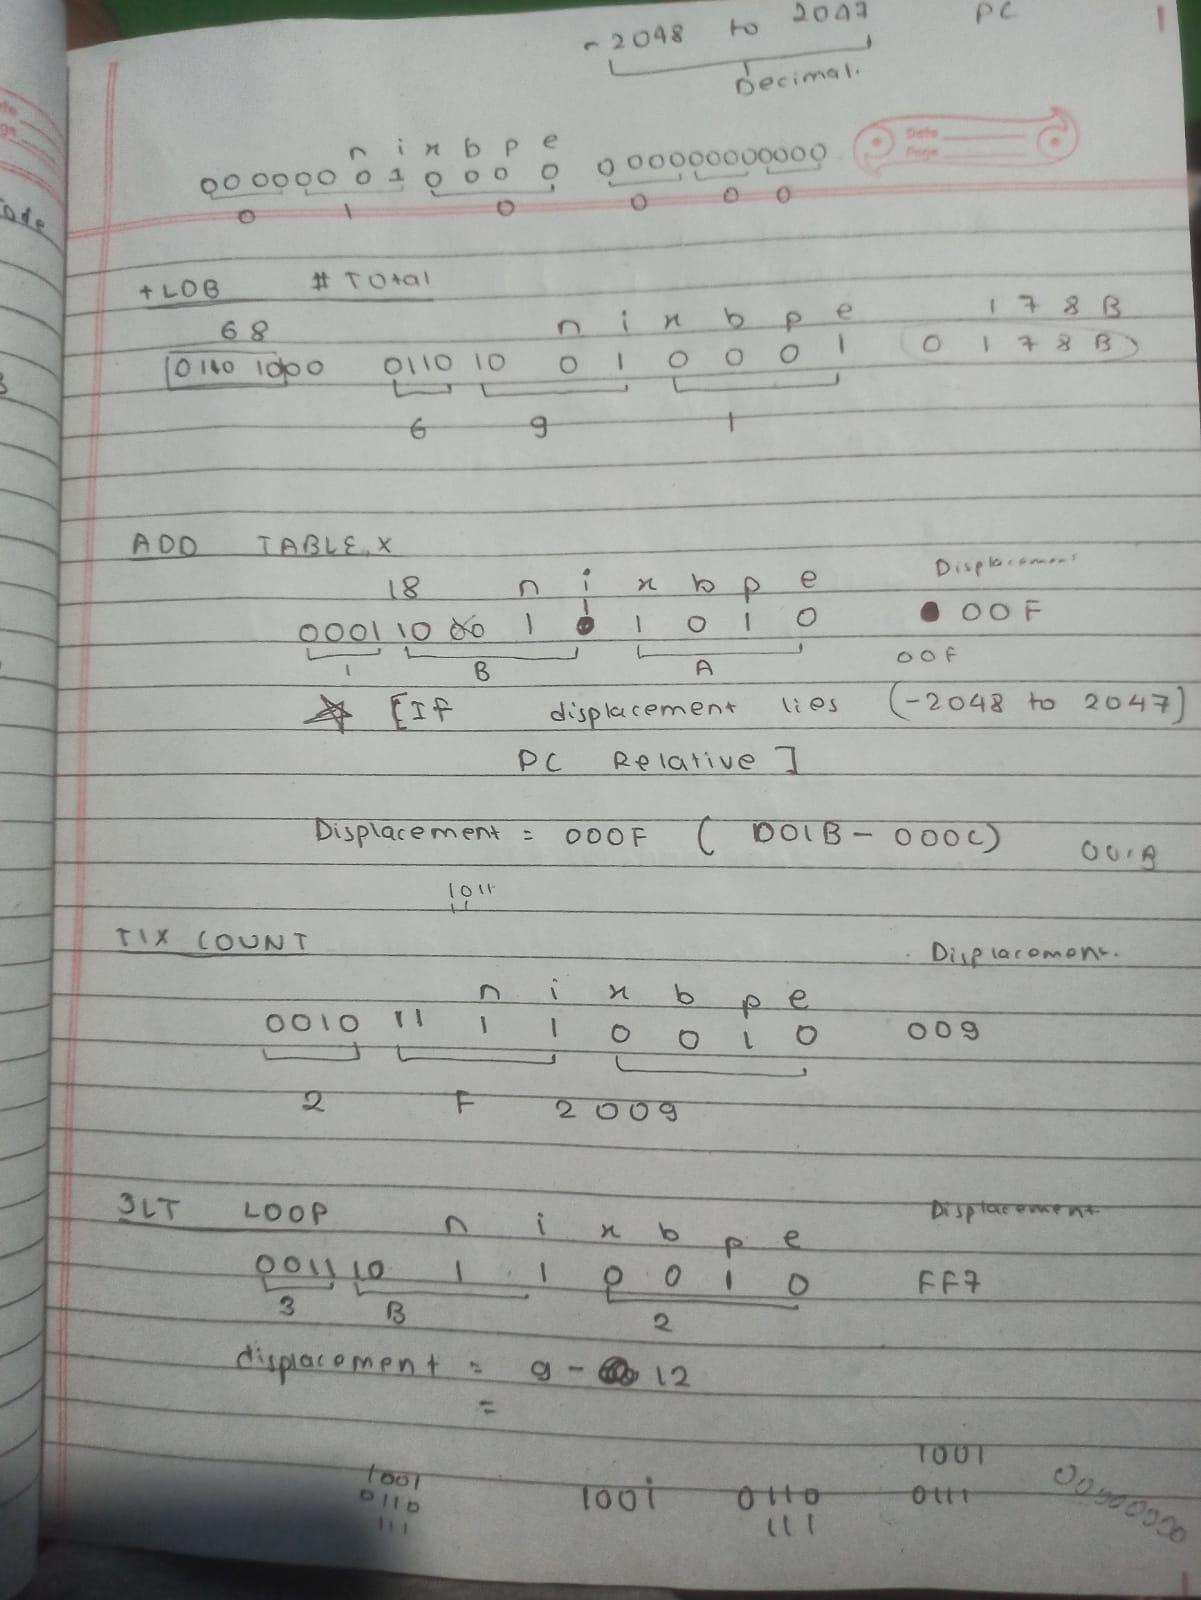 -2048 to 2047 PC
Decimal.
n i x b p e
000000 0 1 0 0 0 0 000000000000
0 1 0 0 0 0
Date
Page
+LDB # Total
68 n i x b p e 1 7 8 B
0110 1000 0110 10 0 1 0 0 0 1 0 1 7 8 B
6 9 1
ADD TABLE, X
18 n i x b p e Displacement
0001 10 1 1 1 0 1 0 00F
1 B A 00F
[If displacement lies (-2048 to 2047)
PC Relative]
Displacement = 000F ( 001B - 000C)
1011
TIX COUNT Displacement.
n i x b p e
0010 11 1 1 0 0 1 0 009
2 F 2009
JLT LOOP Displacement
n i x b p e
0011 10 1 1 0 0 1 0 FF7
3 B 2
displacement = 9 - 12
=
1001 1001
0110 1001 0110 0111
111 111